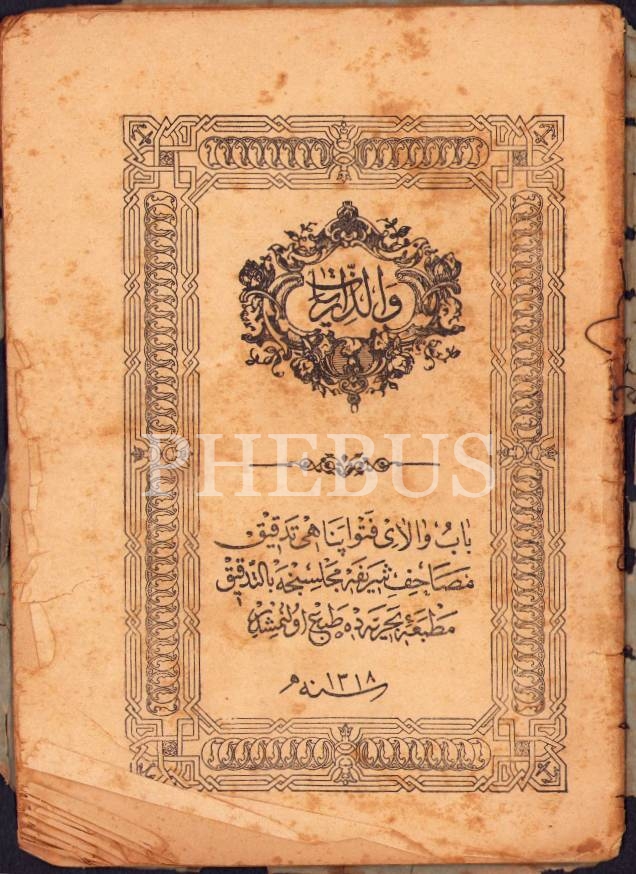 والذاريات
PHEBUS
باب والای فتواپناهی تدقيق
مصاحف شريفه مجلسنجه بالتدقيق
مطبعهٔ بحريه ده طبع اولنمشدر
سنه ١٣١٨